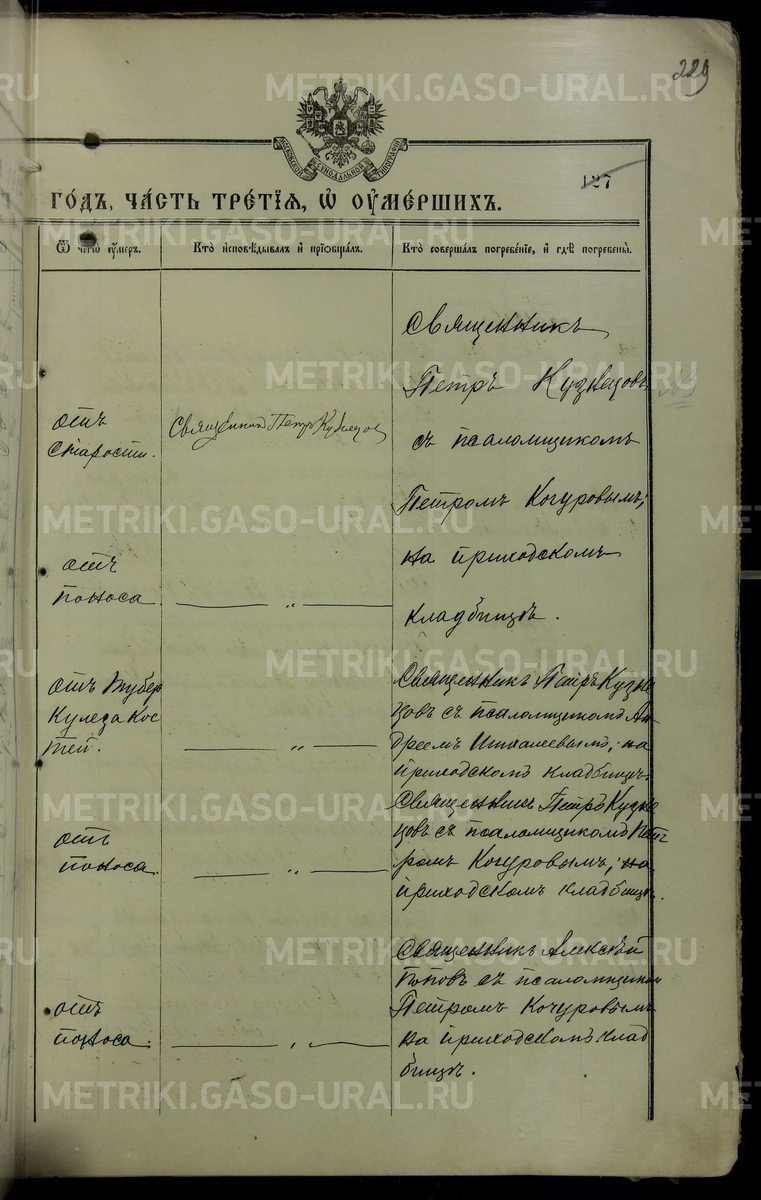 229
МОСКОВСКОЙ СѴНОДАЛЬНОЙ ТИПОГРАФІИ
127
ГО́ДЪ, ЧА́СТЬ ТРЕ́ТІѦ, Ѡ҆ ОУ҆МЕ́РШИХЪ.
Ѿ чегѡ̀ оу҆́меръ.
Кто̀ и҆сповѣ́дывалъ и҆ прїѡбща́лъ.
Кто̀ соверша́лъ погребе́нїе, и҆ гдѣ̀ погребены̀.
отъ
старости.
Священникъ Петръ Кузнецов
Священникъ
Петръ Кузнецовъ
съ псаломщикомъ
Петромъ Кочуровымъ;
на приходскомъ
кладбищѣ.
отъ
поноса.
— „ —
отъ тубер
кулеза кос
тей.
— „ —
Священникъ Петръ Кузне
цовъ съ псаломщикомъ Ан
дреемъ; на
приходскомъ кладбищѣ.
отъ
поноса.
— „ —
Священникъ Петръ Кузне
цовъ съ псаломщикомъ Пет
ромъ Кочуровымъ; на
приходскомъ кладбищѣ.
отъ
поноса.
— „ —
Священникъ Алексѣй
Поповъ съ псаломщикомъ
Петромъ Кочуровымъ
на приходскомъ клад
бищѣ.
METRIKI.GASO-URAL.RU